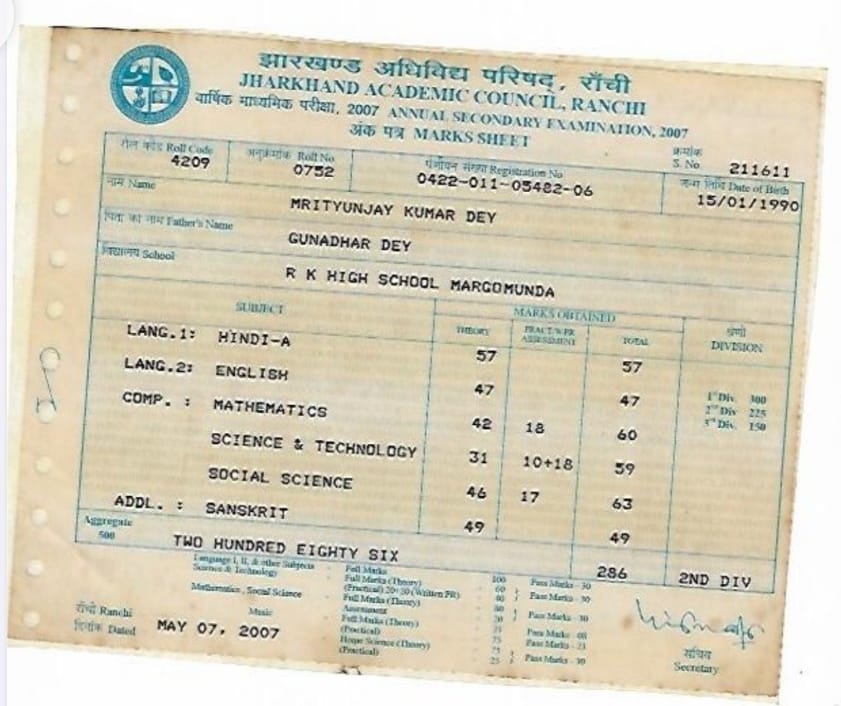 झारखण्ड अधिविद्य परिषद्, राँची
JHARKHAND ACADEMIC COUNCIL, RANCHI
वार्षिक माध्यमिक परीक्षा, 2007 ANNUAL SECONDARY EXAMINATION, 2007
अंक पत्र MARKS SHEET
क्रमांक
S. No. 211611
रौल कोड Roll Code 4209
अनुक्रमांक Roll No 0752
पंजीयन संख्या Registration No 0422-011-05482-06
जन्म तिथि Date of Birth 15/01/1990
नाम Name MRITYUNJAY KUMAR DEY
पिता का नाम Father's Name GUNADHAR DEY
विद्यालय School R K HIGH SCHOOL MARGOMUNDA
SUBJECT MARKS OBTAINED श्रेणी
THEORY PRACT/WPR ASSESSMENT TOTAL DIVISION
LANG.1: HINDI-A 57 57
LANG.2: ENGLISH 47 47
COMP. : MATHEMATICS 42 18 60
SCIENCE & TECHNOLOGY 31 10+18 59
SOCIAL SCIENCE 46 17 63
ADDL. : SANSKRIT 49 49
1st Div. 300
2nd Div 225
3rd Div. 150
Aggregate
500
TWO HUNDRED EIGHTY SIX 286 2ND DIV
Language I, II, & other Subjects - Full Marks - 100 Pass Marks - 30
Science & Technology - Full Marks (Theory) - 60 } Pass Marks - 30
(Practical) 20+20 (Written PR) - 40
Mathematics, Social Science - Full Marks (Theory) - 80 } Pass Marks - 30
Assessment - 20
Music - Full Marks (Theory) - 25 Pass Marks - 08
(Practical) - 75 Pass Marks - 23
Home Science (Theory) - 75 } Pass Marks - 30
(Practical) - 25
राँची Ranchi
दिनांक Dated MAY 07, 2007
सचिव
Secretary